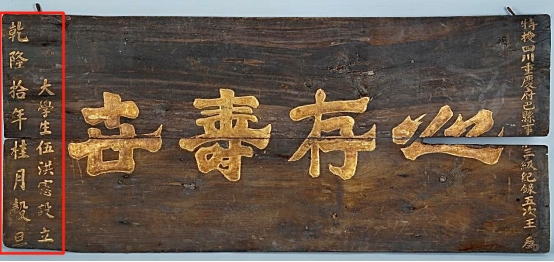 特授四川重慶府巴縣事級紀錄五次王 為
心存壽世
大學生伍洪憲設立
乾隆拾年桂月穀旦